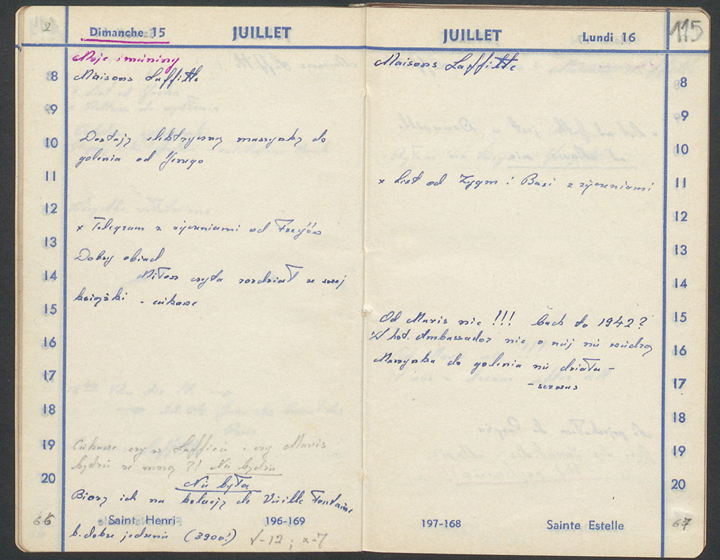 2
Dimanche 15
JUILLET
Moje imieniny
8
Maisons Laffitte
9
Dostaję elektryczną maszynkę do
10
golenia od Jerzego
11
12
x Telegram z życzeniami od
13
Dobry obiad
14
Miłosz czyta rozdział ze swej
15
książki - ciekawe
16
17
18
19
Ciekawe czy w Lafficie i czy Maria
będzie ze mną ?! Nie będzie
20
Nie była
Biorę ich na kolację do Vieille Fontaine
66
Saint Henri
196-169
b. dobre jedzenie (3900!) V-12 ; x-7
115
JUILLET
Lundi 16
Maisons Laffitte
8
9
10
11
x List od Zygm i Basi z życzeniami
12
13
14
15
Od Marii nic !!! do 1942?
W hot. Ambassador nic o niej nie wiedzą
16
Maszynka do golenia nie działa -
17
- serwus
18
19
20
197-168
Sainte Estelle
67